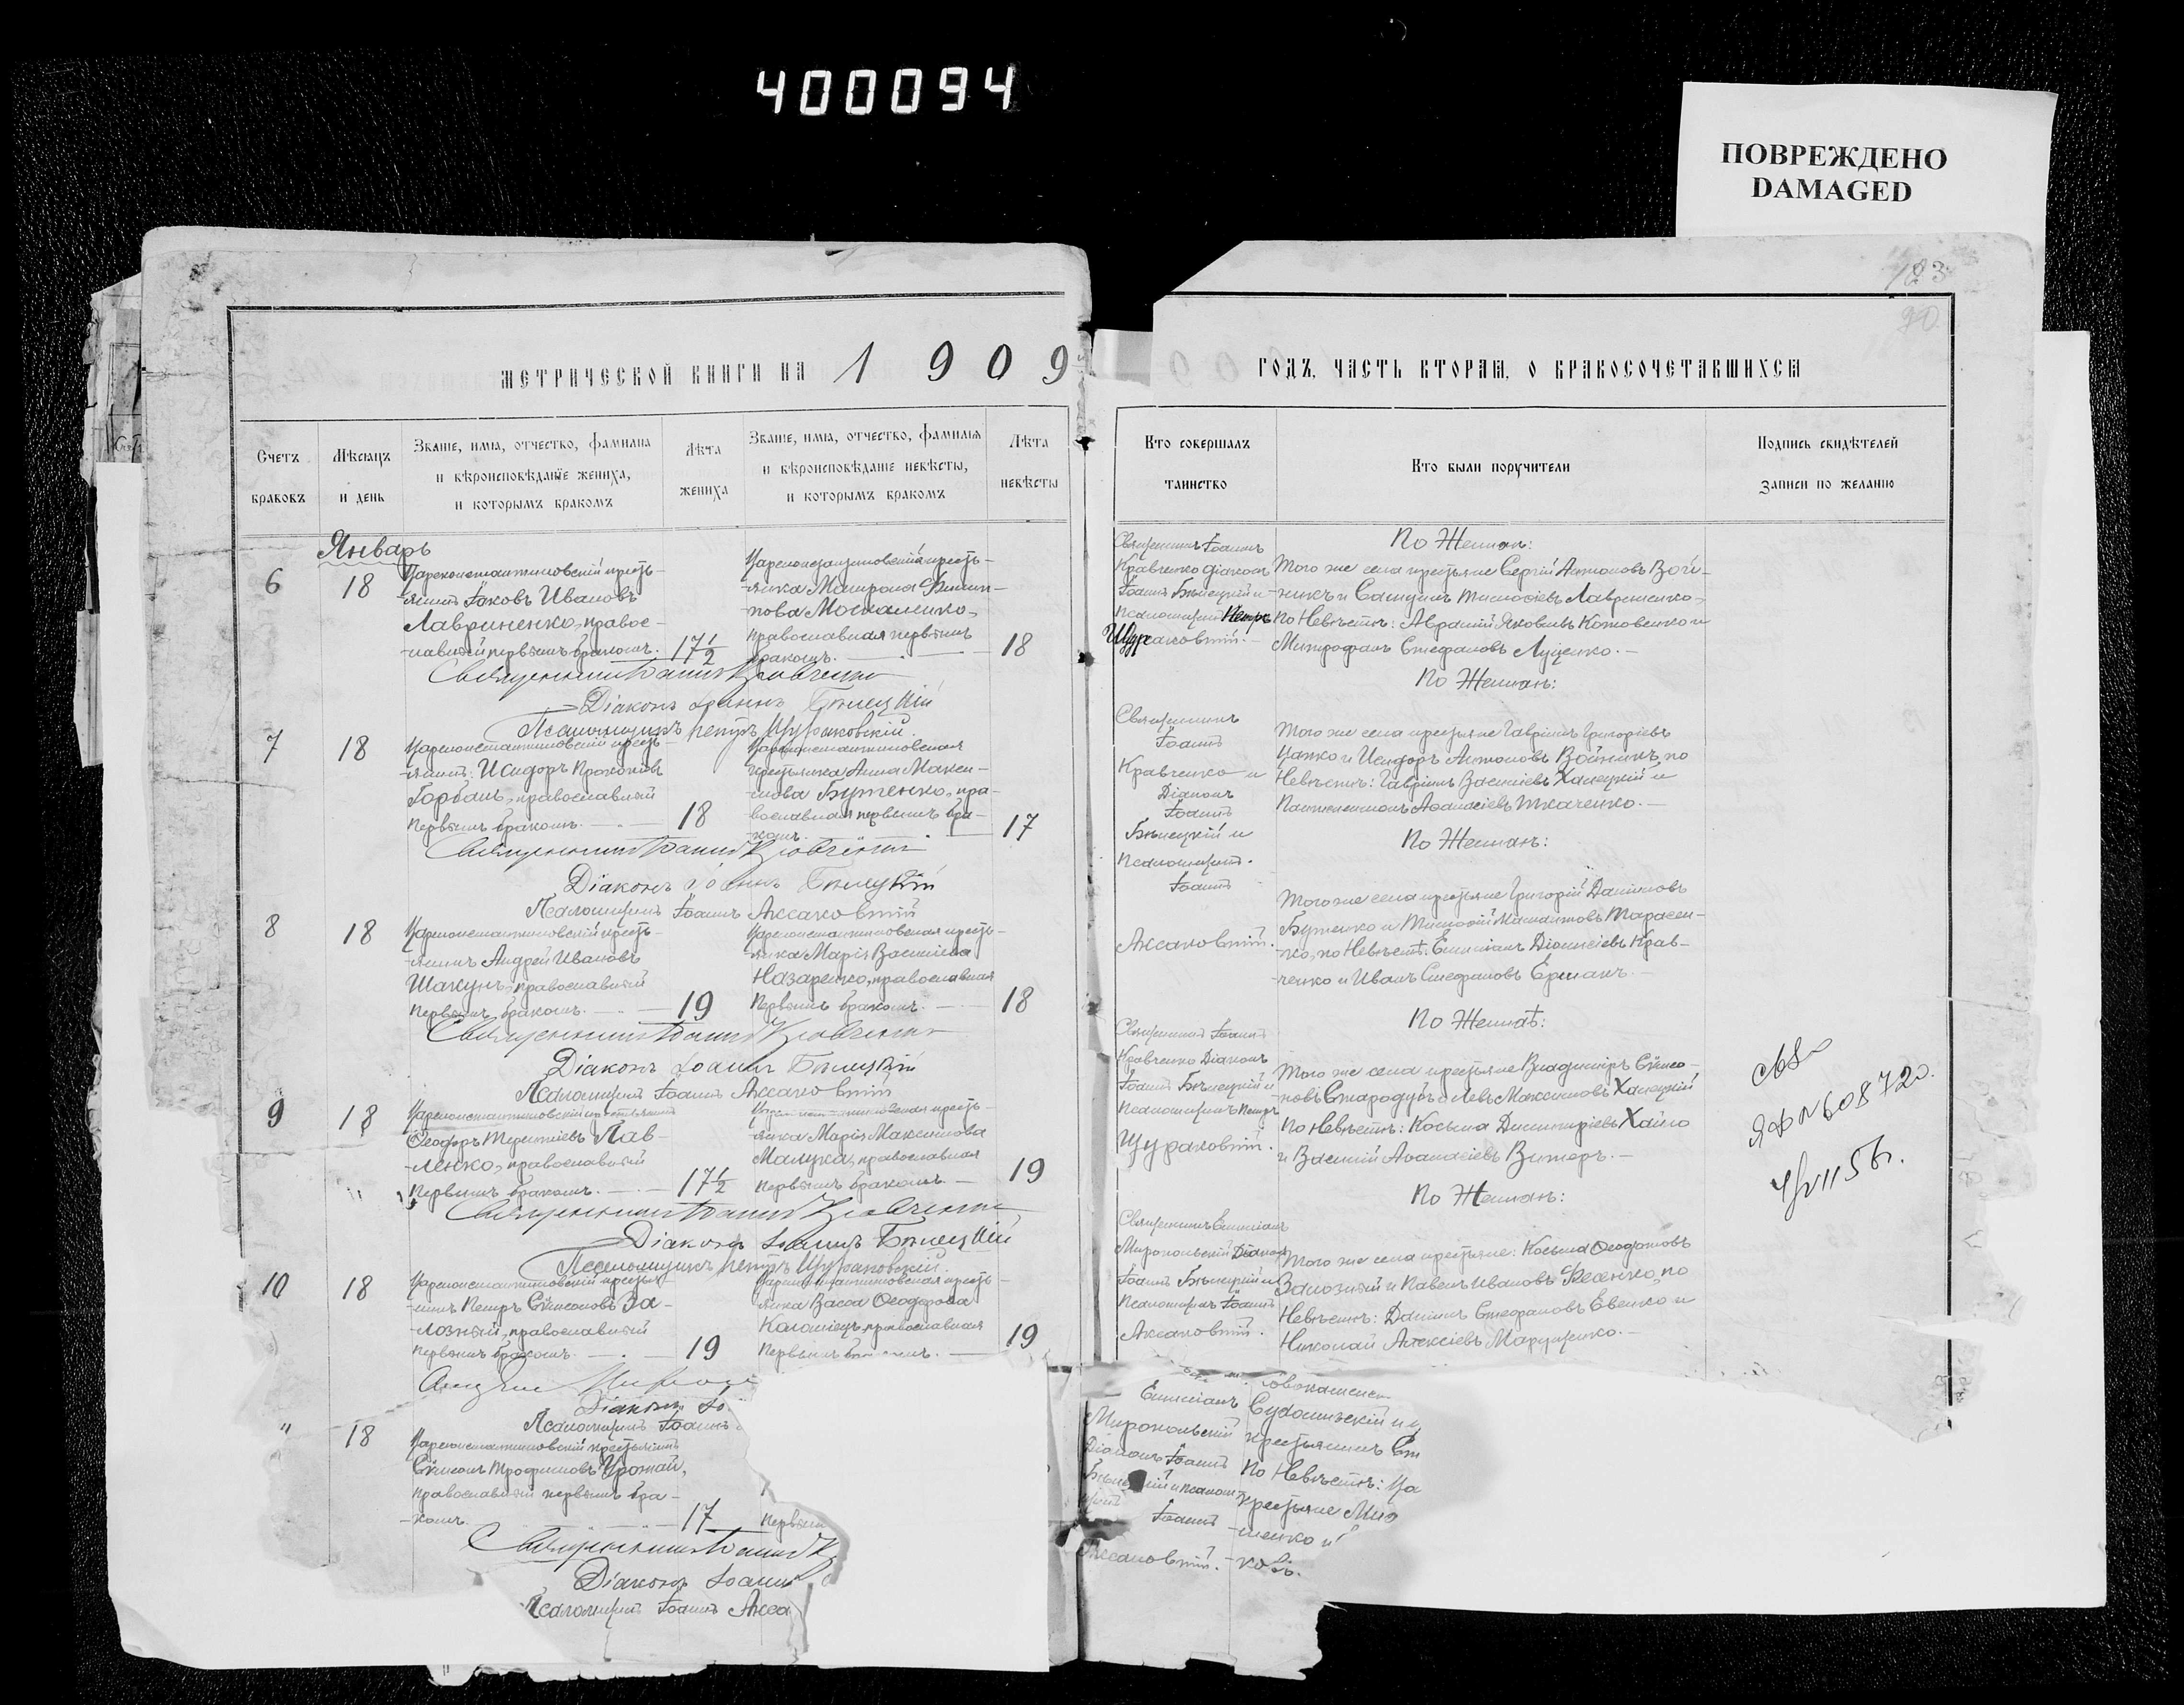 400094
ПОВРЕЖДЕНО
DAMAGED
183
90
МЕТРИЧЕСКОЙ КНИГИ НА 1909
ГОДЪ, ЧАСТЬ ВТОРАЯ, О БРАКОСОЧЕТАВШИХСЯ
Счетъ браковъ
Мѣсяцъ и день
Званіе, имя, отчество, фамилія и вѣроисповѣданіе жениха, и которымъ бракомъ
Лѣта жениха
Званіе, имя, отчество, фамилія и вѣроисповѣданіе невѣсты, и которымъ бракомъ
Лѣта невѣсты
Кто совершалъ таинство
Кто были поручители
Подпись свидѣтелей записи по желанію
Январь
6
18
Цареконстантиновскій кресть-
-янинъ Іаковъ Ивановъ
Лавриненко, правос-
-лавный первымъ бракомъ.
17½
Цареконстантиновская кресть-
-янка Матрона Филип-
-пова Москаленко,
православная первымъ
бракомъ.
18
Священникъ Іоаннъ
Кравченко діаконъ
Іоаннъ Бѣлецкій и
Псаломщикъ Петръ
Щураковскій.
По Женихѣ:
Того же села крестьяне Сергій Антоновъ Вой-
-никъ и Самуилъ Тимоѳіевъ Лавриненко,
по Невѣстѣ: Аврамій Яковлевъ Котовенко и
Митрофанъ Стефановъ Луценко.
Священникъ Іоаннъ Кравченко
Діаконъ Іоаннъ Бѣлецкій
Псаломщикъ Петръ Щураковскій.
7
18
Цареконстантиновскій кресть-
-янинъ Исидоръ Прокопіевъ
Горбань, православный
первымъ бракомъ.
18
Цареконстантиновская
крестьянка Анна Макси-
-мова Бутенко, пра-
вославная первымъ бра-
-комъ.
17
Священникъ
Іоаннъ
Кравченко и
Діаконъ
Іоаннъ
Бѣлецкій и
Псаломщикъ
Іоаннъ
Аксаковскій.
По Женихѣ:
Того же села крестьяне Гавріилъ Григоріевъ
Цапко и Исидоръ Антоновъ Войникъ, по
Невѣстѣ: Гавріилъ Василіевъ Ханецкій и
Пантелеимонъ Аѳанасіевъ Ткаченко.
Священникъ Іоаннъ Кравченко
Діаконъ Іоаннъ Бѣлецкій
Псаломщикъ Іоаннъ Аксаковскій
8
18
Цареконстантиновскій кресть-
-янинъ Андрей Ивановъ
Шакунъ, православный
первымъ бракомъ.
19
Цареконстантиновская кресть-
-янка Марія Василіева
Назаренко, православная
первымъ бракомъ.
18
По Женихѣ:
Того же села крестьяне Григорій Даниловъ
Бутенко и Тимоѳій Тарасен-
-ко, по Невѣстѣ: Емиліанъ Діонисіевъ Крав-
-ченко и Иванъ Стефановъ Ермакъ.
Священникъ Іоаннъ Кравченко
Діаконъ Іоаннъ Бѣлецкій
Псаломщикъ Іоаннъ Аксаковскій
9
18
Цареконстантиновскій крестьянинъ
Ѳеодоръ Терентіевъ Пав-
-ленко, православный
первымъ бракомъ.
17½
Цареконстантиновская кресть-
-янка Марія Максимова
Малуха, православная
первымъ бракомъ.
19
Священникъ Іоаннъ
Кравченко Діаконъ
Іоаннъ Бѣлецкій и
Псаломщикъ Петръ
Щураковскій.
По Женихѣ:
Того же села крестьяне Владиміръ Симео-
-новъ Стародубъ и Левъ Максимовъ Ханецкій
по Невѣстѣ: Косьма Димитріевъ Хайло
и Василій Аѳанасіевъ Витеръ.
Священникъ Іоаннъ Кравченко
Діаконъ Іоаннъ Бѣлецкій
Псаломщикъ Петръ Щураковскій.
10
18
Цареконстантиновскій крестья-
-нинъ Петръ Симеоновъ За-
-лозный, православный
первымъ бракомъ.
19
Цареконстантиновская кресть-
-янка Васса Ѳеодорова
Коломіецъ, православная
первымъ
19
Священникъ Емиліанъ
Миропольскій Діаконъ
Іоаннъ Бѣлецкій и
Псаломщикъ Іоаннъ
Аксаковскій.
По Женихѣ:
Того же села крестьяне: Косьма Ѳеодотовъ
Залозный и Павелъ Ивановъ Фесенко, по
Невѣстѣ: Даніилъ Стефановъ Евенко и
Николай Алексіевъ Марущенко.
Діаконъ Іо
Псаломщикъ Іоаннъ
"
18
Цареконстантиновскій крестьянинъ
Симеонъ Трофимовъ Урожай,
православный первымъ бра-
-комъ.
17
Первым
Емиліанъ
Миропольскій
Діаконъ Іоаннъ
Іоаннъ
Аксаковскій.
крестьянинъ Ст
По Невѣстѣ: Ца
крестьяне Мих
-шенко и
-ковъ.
Священникъ Іоаннъ К
Діаконъ Іоаннъ
Псаломщикъ Іоаннъ Акса